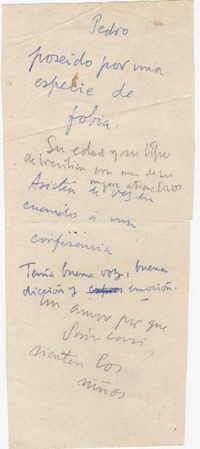 Pedro
poseido por una
especie de
fobia.
Su edad y su tipo
de brasilian con uno de los
mayores atractivos
Asistia de vez en
cuando a una
conferencia
Tenía buena voz, buena
dicción y emoción.
Un amor por que
sienten los
niños